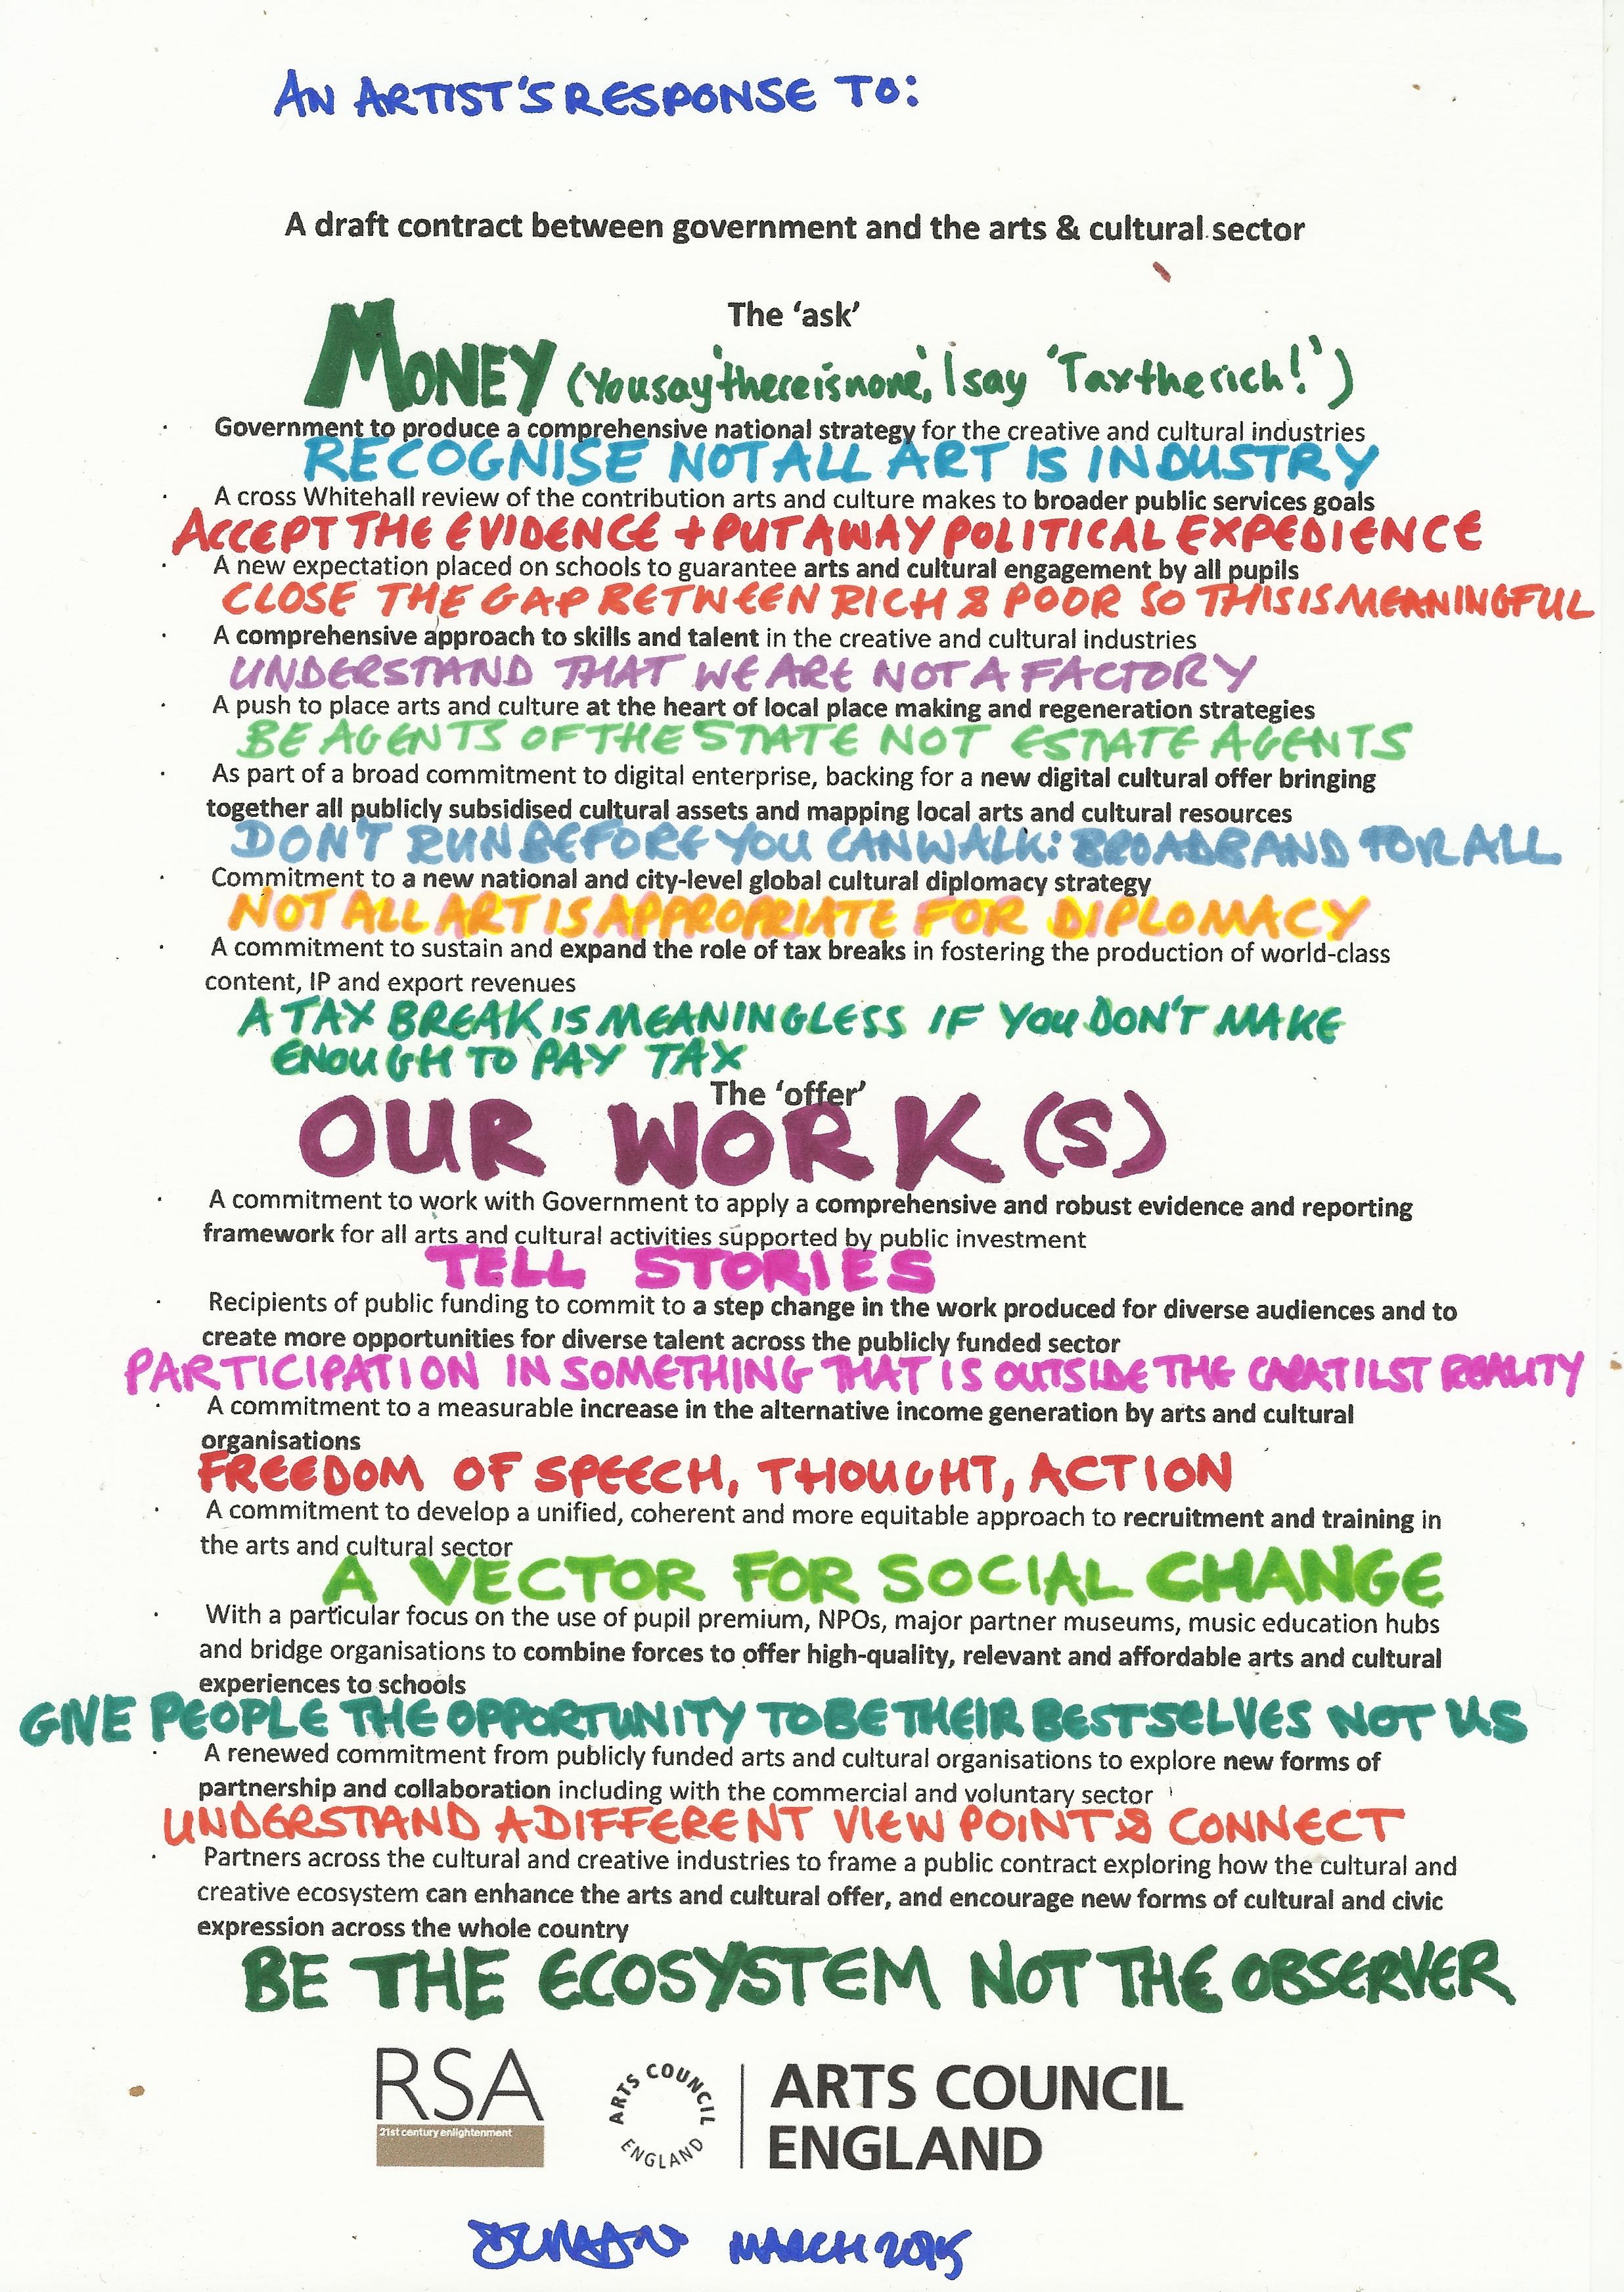 AN ARTIST'S RESPONSE TO:
A draft contract between government and the arts & cultural sector
The 'ask'
MONEY (You say 'there is none', I say 'Tax the rich!')
· Government to produce a comprehensive national strategy for the creative and cultural industries
RECOGNISE NOT ALL ART IS INDUSTRY
· A cross Whitehall review of the contribution arts and culture makes to broader public services goals
ACCEPT THE EVIDENCE + PUT AWAY POLITICAL EXPEDIENCE
· A new expectation placed on schools to guarantee arts and cultural engagement by all pupils
CLOSE THE GAP BETWEEN RICH & POOR SO THIS IS MEANINGFUL
· A comprehensive approach to skills and talent in the creative and cultural industries
UNDERSTAND THAT WE ARE NOT A FACTORY
· A push to place arts and culture at the heart of local place making and regeneration strategies
BE AGENTS OF THE STATE NOT ESTATE AGENTS
· As part of a broad commitment to digital enterprise, backing for a new digital cultural offer bringing
together all publicly subsidised cultural assets and mapping local arts and cultural resources
DON'T RUN BEFORE YOU CAN WALK: BROADBAND FOR ALL
· Commitment to a new national and city-level global cultural diplomacy strategy
NOT ALL ART IS APPROPRIATE FOR DIPLOMACY
· A commitment to sustain and expand the role of tax breaks in fostering the production of world-class
content, IP and export revenues
A TAX BREAK IS MEANINGLESS IF YOU DON'T MAKE
ENOUGH TO PAY TAX
The 'offer'
OUR WORK (S)
· A commitment to work with Government to apply a comprehensive and robust evidence and reporting
framework for all arts and cultural activities supported by public investment
TELL STORIES
· Recipients of public funding to commit to a step change in the work produced for diverse audiences and to
create more opportunities for diverse talent across the publicly funded sector
PARTICIPATION IN SOMETHING THAT IS OUTSIDE THE REALITY
· A commitment to a measurable increase in the alternative income generation by arts and cultural
organisations
FREEDOM OF SPEECH, THOUGHT, ACTION
· A commitment to develop a unified, coherent and more equitable approach to recruitment and training in
the arts and cultural sector
A VECTOR FOR SOCIAL CHANGE
· With a particular focus on the use of pupil premium, NPOs, major partner museums, music education hubs
and bridge organisations to combine forces to offer high-quality, relevant and affordable arts and cultural
experiences to schools
GIVE PEOPLE THE OPPORTUNITY TO BE THEIR BEST SELVES NOT US
· A renewed commitment from publicly funded arts and cultural organisations to explore new forms of
partnership and collaboration including with the commercial and voluntary sector
UNDERSTAND A DIFFERENT VIEW POINT & CONNECT
· Partners across the cultural and creative industries to frame a public contract exploring how the cultural and
creative ecosystem can enhance the arts and cultural offer, and encourage new forms of cultural and civic
expression across the whole country
BE THE ECOSYSTEM NOT THE OBSERVER
RSA
21st century enlightenment
ARTS COUNCIL
ENGLAND
ARTS COUNCIL
ENGLAND
MARCH 2015